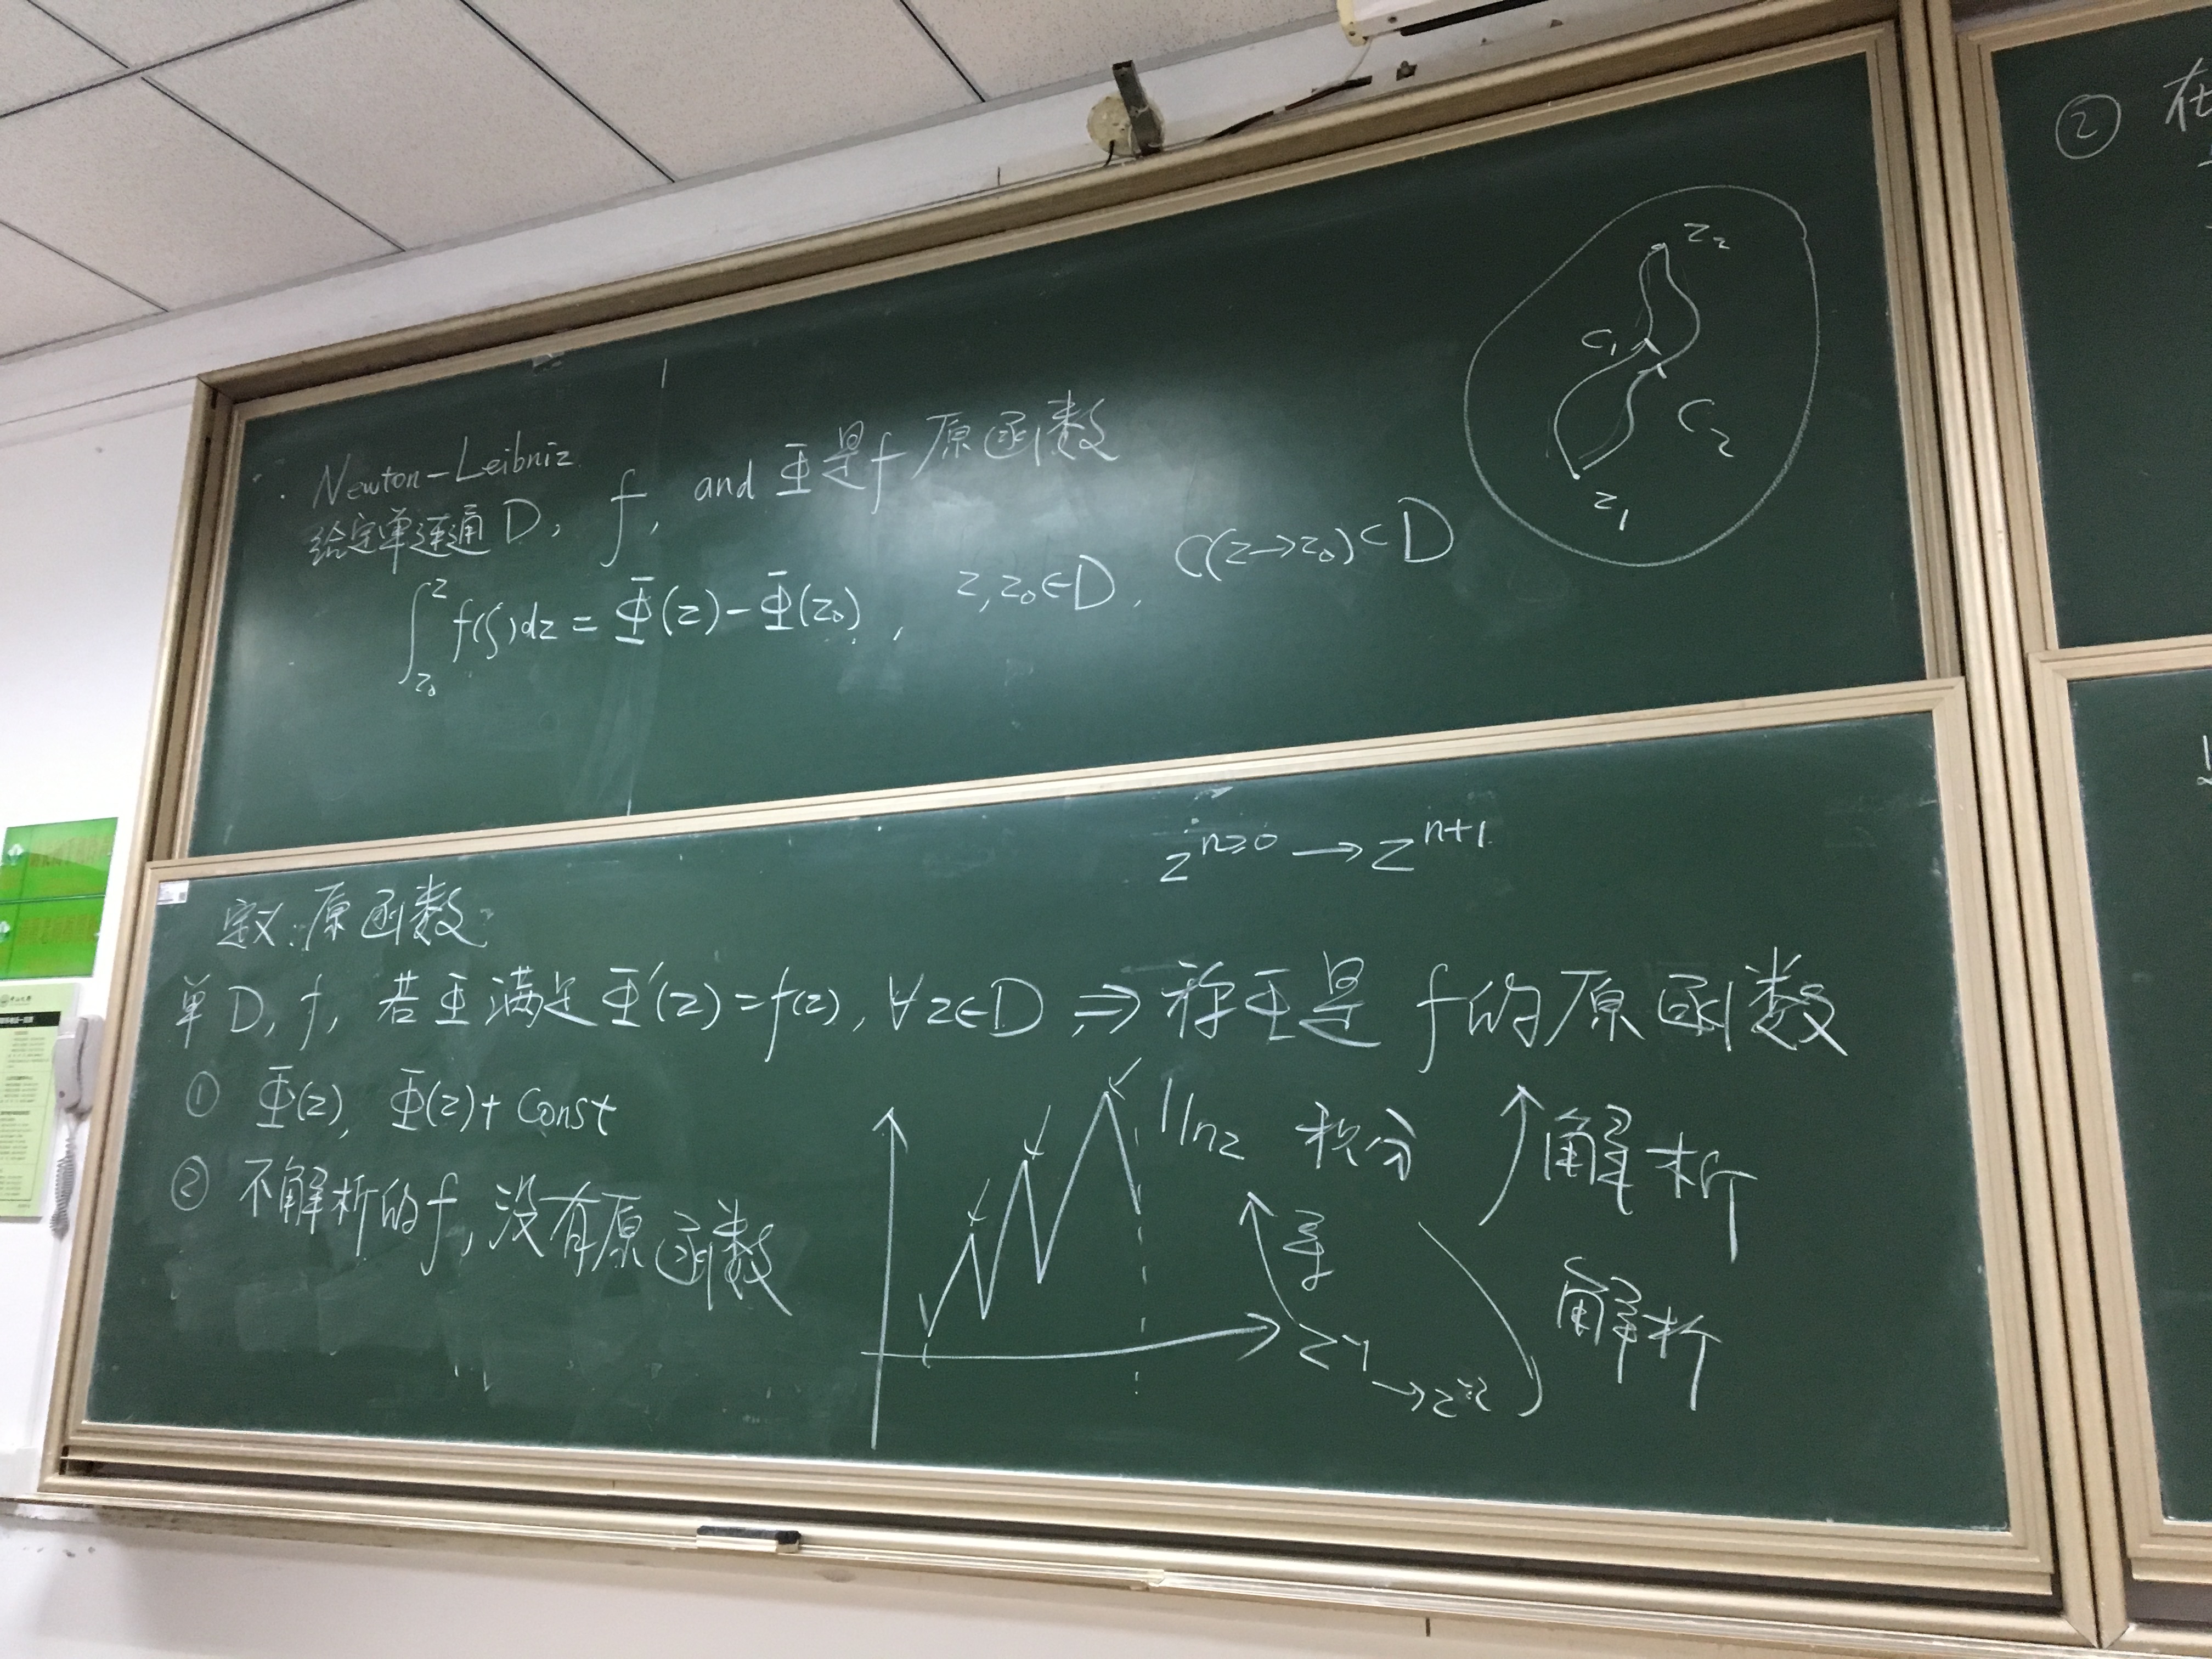 Newton-Leibniz
给定单连通D, f, and Φ是f原函数
∫_{z₀}^{z} f(ζ)dz = Φ(z)-Φ(z₀), z,z₀∈D, C(z→z₀)⊂D
z₂
C₁
C₂
z₁
② 在
z^{n≥0} → z^{n+1}
定义:原函数
单D, f, 若Φ满足Φ'(z)=f(z), ∀z∈D, ⇒ 称Φ是f的原函数
① Φ(z), Φ(z)+Const
② 不解析的f, 没有原函数
lnz 积分 解析
导 解析
z⁻¹
→z⁻²